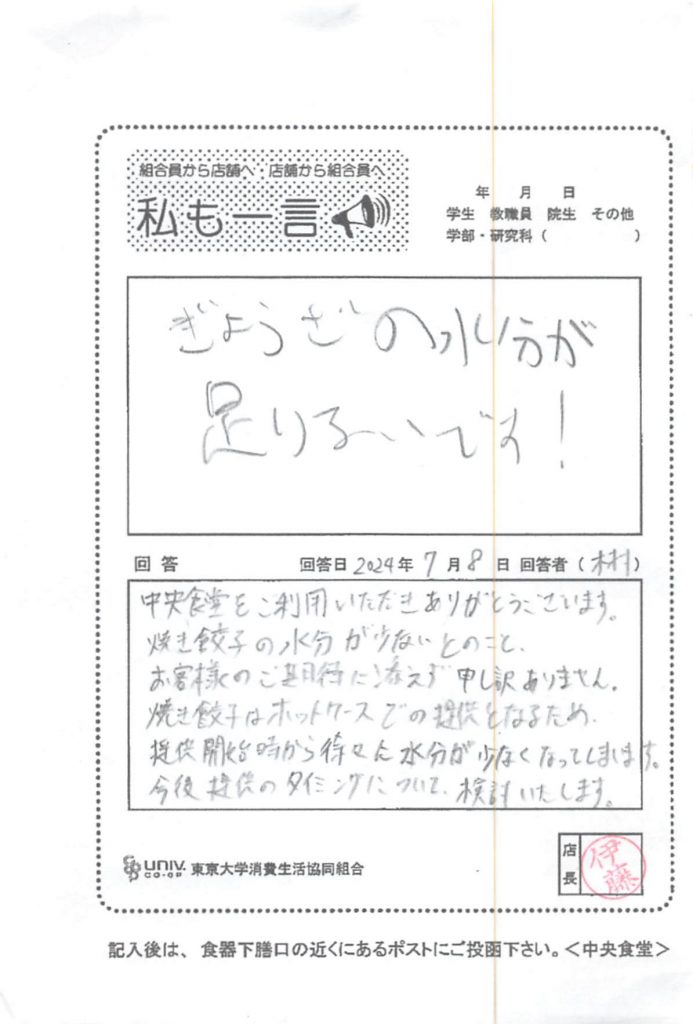 組合員から店舗へ・店舗から組合員へ
私も一言
年 月 日
学生 教職員 院生 その他
学部・研究科( )
ぎょうざの水分が
足りないです!
回答 回答日 2024年 7月 8日 回答者(木村)
中央食堂をご利用いただきありがとうございます。
焼き餃子の水分が少ないとのこと、
お客様のご期待に添えず申し訳ありません。
焼き餃子はホットケースでの提供となるため、
提供開始時から徐々に水分が少なくなってしまいます。
今後提供のタイミングについて、検討いたします。
UNIV. CO-OP 東京大学消費生活協同組合
店長
伊藤
記入後は、食器下膳口の近くにあるポストにご投函下さい。<中央食堂>